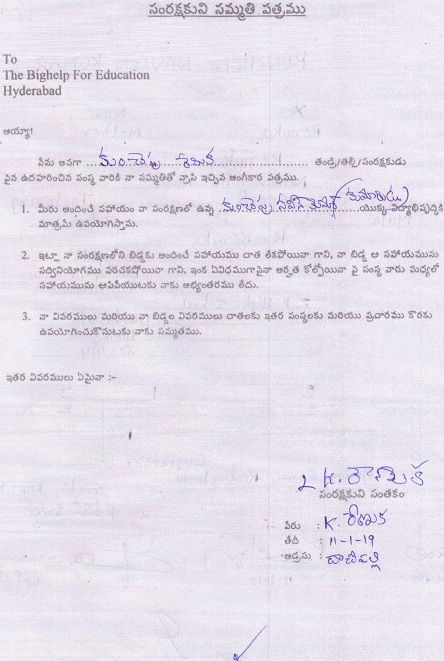 సంరక్షకుని సమ్మతి పత్రము
To
The Bighelp For Education
Hyderabad
అయ్యా!
నేను అనగా తండ్రి/తల్లి/సంరక్షకుడు
పైన ఉదహరించిన సంస్థ వారికి నా సమ్మతితో వ్రాసి ఇచ్చిన అంగీకార పత్రము.
1. మీరు అందించే సహాయం నా సంరక్షణలో ఉన్న (కుమారుడు) యొక్క విద్యాభివృద్ధికి
మాత్రమే ఉపయోగిస్తాను.
2. ఇట్లా నా సంరక్షణలోని బిడ్డకు అందించే సహాయము దాత లేకపోయినా గాని, నా బిడ్డ ఆ సహాయమును
సద్వినియోగము పరచకపోయినా గాని. ఇంక ఏవిధముగానైనా అర్హత కోల్పోయినా పై సంస్థ వారు మధ్యలో
సహాయమును ఆపివేయుటకు నాకు అభ్యంతరము లేదు.
3. నా వివరములు మరియు నా బిడ్డల వివరములు దాతలకు ఇతర సంస్థలకు మరియు ప్రచారము కొరకు
ఉపయోగించుకొనుటకు నాకు సమ్మతము.
ఇతర వివరములు ఏమైనా :-
సంరక్షకుని సంతకం
పేరు : K. రేణుక
తేదీ : 11-1-19
అడ్రసు : దాచేపల్లి